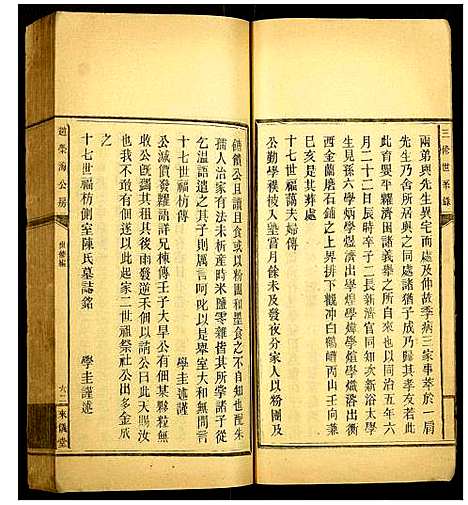 三修世系錄
兩弟與先生異宅而處及仲故季病三家事萃於一肩
先生乃舍所居與之同處諸猶子成乃歸其孝友若此
此育嬰平糶濟困諸義舉之所自來也同治五年六
月二十二日辰時卒子二長新濟官同知次新浴太學
生見孫六學炳學煜濟出學煌學煒學煊學熾浴出衝
西金蘭磨石鋪之上昇排下觀冲白鶴嶂丙山壬向兼
巳亥是其葬處
十七世福藹夫婦傳
公勤學穫被人望嘗月餘未及發夜分家人以粉團及
饋公且讀且食或以粉團和墨食之不自知也配朱
孺人治家有法未析產時米鹽零雜皆其所掌諸子從
乞溫語遣之其子則厲言呵叱以是舉室大和無間言
學圭謹譔
十七世福枋傳
公減價發糶語詳兄棟傳壬子大旱公有佃田某穀少
收公已蠲其租其後雨發逆禾個以請公曰此天賜汝
也我不可以此起家二世祖祭社公出多金成
學圭謹述
十七世福枋側室陳氏墓誌銘
趙榮海公房
世修編
六二
來儀堂